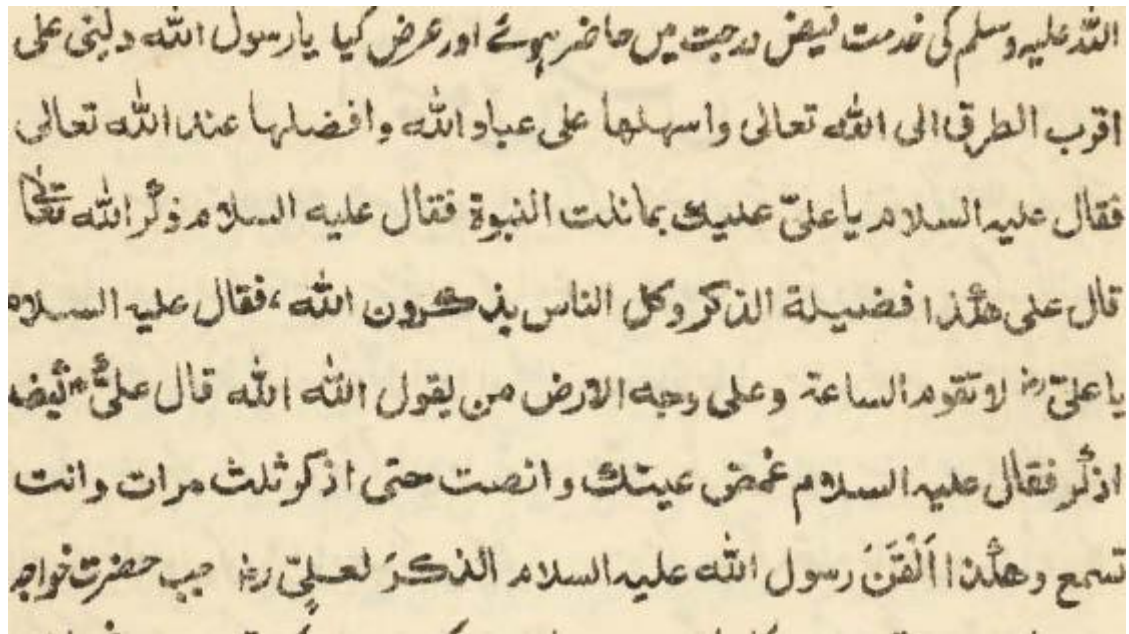 اللہ علیہ وسلم کی خدمت فیض درجت میں حاضر ہوئے اور عرض کیا یا رسول اللہ دلنی علی
اقرب الطرق الی اللہ تعالی واسہلہا علی عباد اللہ وافضلہا عند اللہ تعالی
فقال علیہ السلام یا علیّ علیک بما نلت النبوۃ فقال علیہ السلام ذکر اللہ تعالیٰ
قال علی ھٰکذا فضیلۃ الذکر وکل الناس یذکرون اللہ، فقال علیہ السلام
یا علیّ رضہ لا تقوم الساعۃ وعلی وجہ الارض من یقول اللہ اللہ قال علیؓ
اذکر فقال علیہ السلام غمض عینک وانصت حتی اذکر ثلث مرات وانت
تسمع وھٰکذا اَلْقَنَ رسول اللہ علیہ السلام الذکرَ لعلیّ رضہ جب حضرت خواجہ